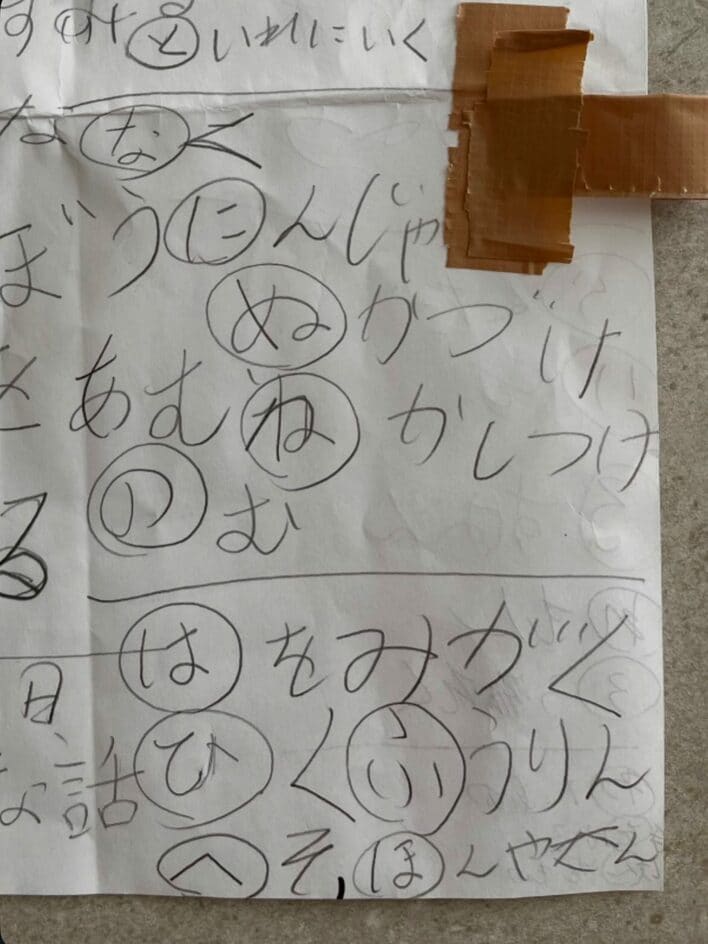 といれにいく
なく
ぼうにんじゃ
ぬかづけ
とあむ ねかしつけ
る のむ
はをみがく
日
な話 ひくふうりん
へそ,ほんやさん